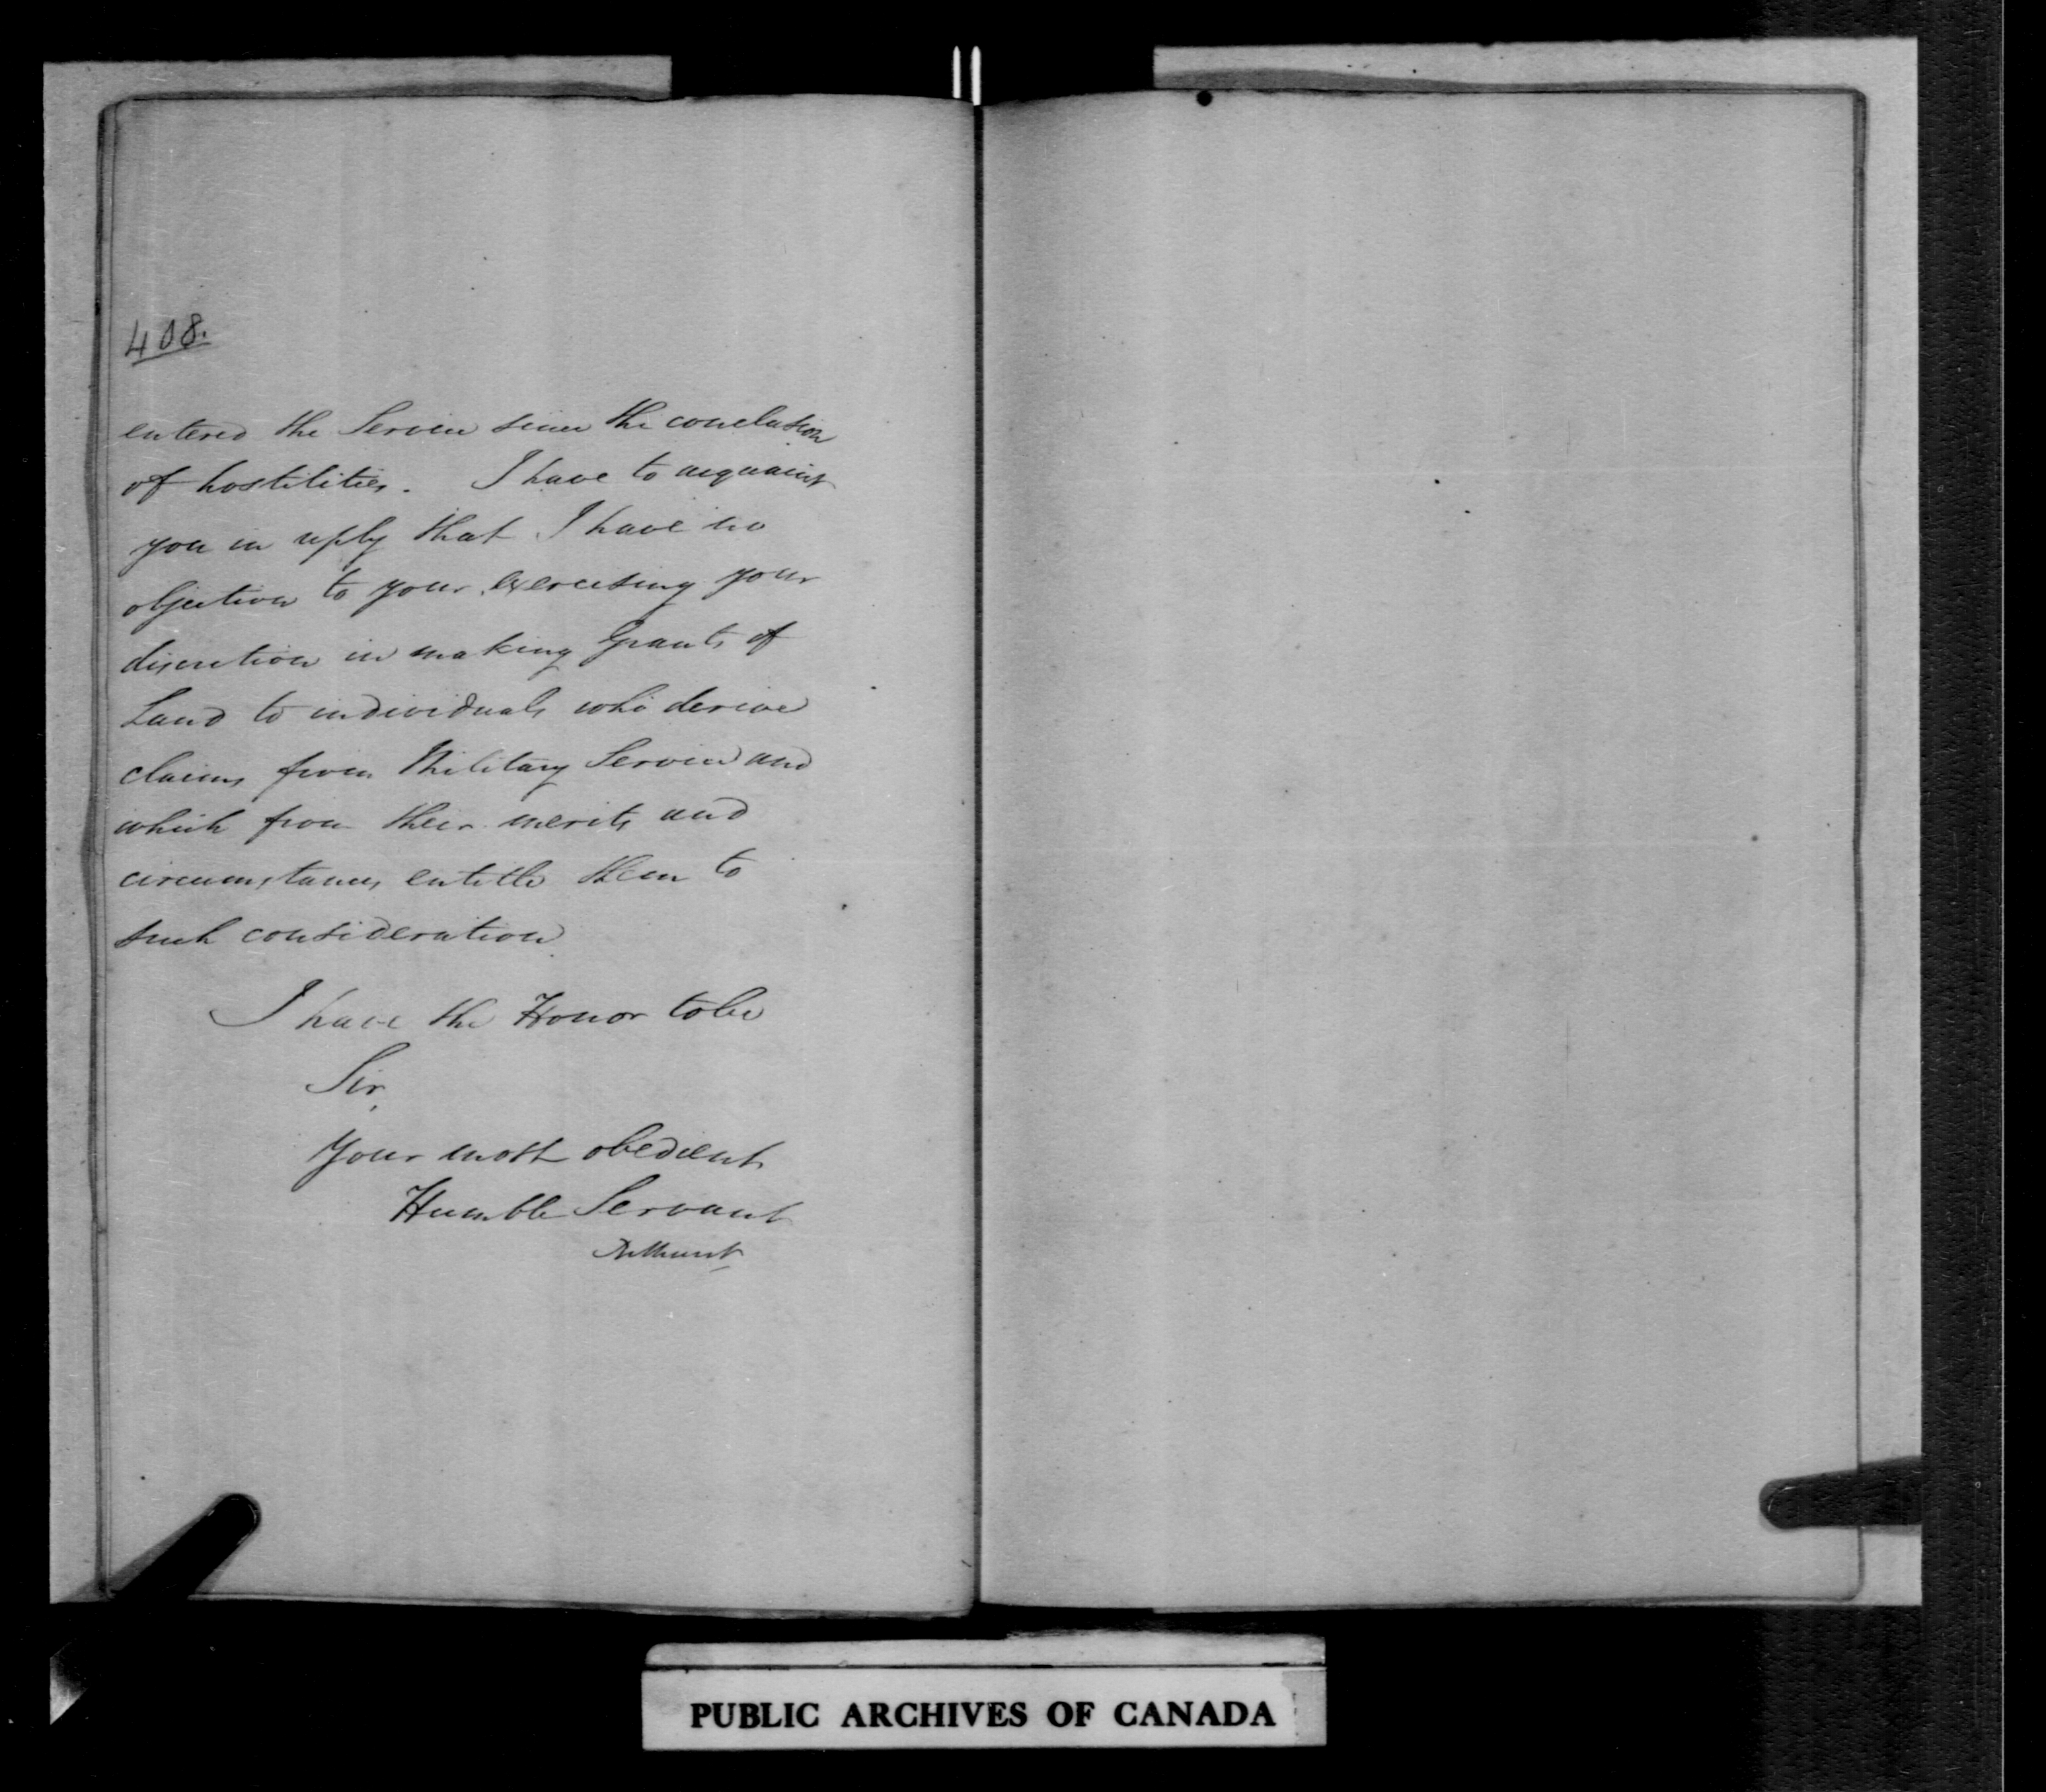 408.
entered the Service since the conclusion
of hostilities. I have to acquaint
you in reply that I have no
objection to your exercising your
discretion in making Grants of
Land to individuals who derive
claims from Military Service and
which from their merits and
circumstances entitle them to
such consideration
I have the Honor to be
Sir,
Your most obedient
Humble Servant
Bathurst
PUBLIC ARCHIVES OF CANADA